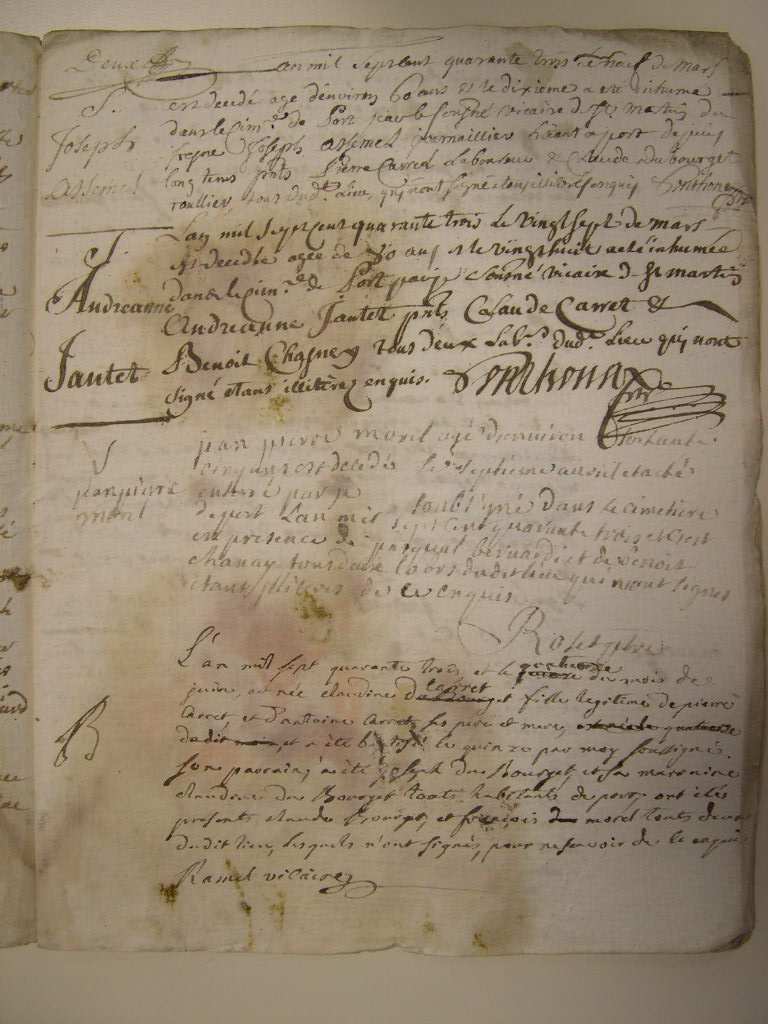 Deux
an mil sept cent quarante trois le neuf de mars
S. est decedé agé denviron 60 ans et le dixieme a été inhumé
Joseph dans le cim.re de Port par le soussigné vicaire d St martin du
fresne Joseph assemel journaillier habitant a port depuis
assemel long tems pnts Pierre Carret laboureur & Claude dubourget
roullier, tous dud. lieu, qui n'ont signé etans illiteres enquis
L'an mil sept cent quarante trois le vingt sept de mars
S. est decedée agée de 30 ans et le vingt huit a eté inhumée
Andreanne dans le cim.re de Port par je soussigné vicaire d St martin
Andreanne Jantet pnts Claude Carret &
Jantet Benoit Chagney tous deux lab.rs dud. lieu qui n'ont
signé etans illiteres enquis.
S jean pierre morel agé d'environ
cinq ans est decedés le septieme avril et a été
jean pierre enterré par je
morel soubsigné dans le cimetiere
de port l'an mil sept cent quarante trois et c'est
en presence de et de benoit
chanay tous deux dudit lieu qui n'ont signés
etant illiteres de ce enquis
Roset ptre
L'an mil sept quarante trois, et le quatorze du mois de
juin, est née claudine Carret fille legitime de pierre
Carret, et d'antoine Carret ses pere et mere,
B dudit et a été batisé le quinze par moy soussigné.
son parrain, a été joseph du Bourget, et sa marenine
claudine du Bourget touts habitants de port, ont étés
presents claude Bourget, et françois morel touts deux
dudit lieu, lesquels n'ont signés, pour ne scavoir de ce enquis
Ramel vicaire